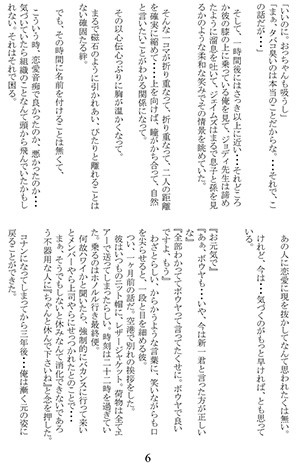 「いいのに。おっちゃんも吸うし」
「まぁ、タバコ臭いのは本当のことだからな」…それで、この話だが…」
そして、一時間後にはさっき以上に近い…それどころか彼の膝の上に乗っている俺を見て、ジョディ先生は諦めたように溜息を吐いて、ジェイムズはまるで息子と孫を見るかのような柔和な笑みでその情景を眺めていた。
そんな一コマが折り重なって、折り重なって、二人の距離を確実に縮めて…上を向けば、瞳がかち合って、自然と言いたいことがわかる関係になって。
その以心伝心っぷりに胸が温かくなって。
まるで磁石のように引かれあい、ぴたりと離れることはない確固たる絆。
でも、その時間に名前を付けることは無くて、
こういう時、恋愛音痴で良かったのか、悪かったのか…
気づいていたら組織のことなんて頭から飛んでいたかもしれない。それはそれで困る。
あの人に恋愛に現を抜かしてなんて思われたくは無い。
けれど、今は…気づくのがもっと早ければ、とも思って
『お元気で』
『あぁ、ボウヤも…いや、今は新一君と言った方が正しいな』
『全部わかっててボウヤって言ってたくせに。ボウヤで良いですよ、もう』
わざとらしい、からかうような言葉に、笑いながらも口を尖らせると、一段と目を細める彼。
つい、一ヶ月前の話だ。空港で別れの挨拶をした。
彼はいつものニット帽に、レザージャケット。荷物は全てエアーで送ってしまったらしい。時刻は二十二時を過ぎていた。乗るのはホノルル行き最終便。
何故ハワイかと聞いたら、強制的にバカンスに行って来いとメンバーやら上司やらにせっつかれたとのことで…
まぁ、そうでもしないと休みなんて消化できないであろう不器用な人に『ちゃんと休んで下さいね』と念を押した。
コナンになってしまってから三年後…俺は漸く元の姿に戻ることができた。
6